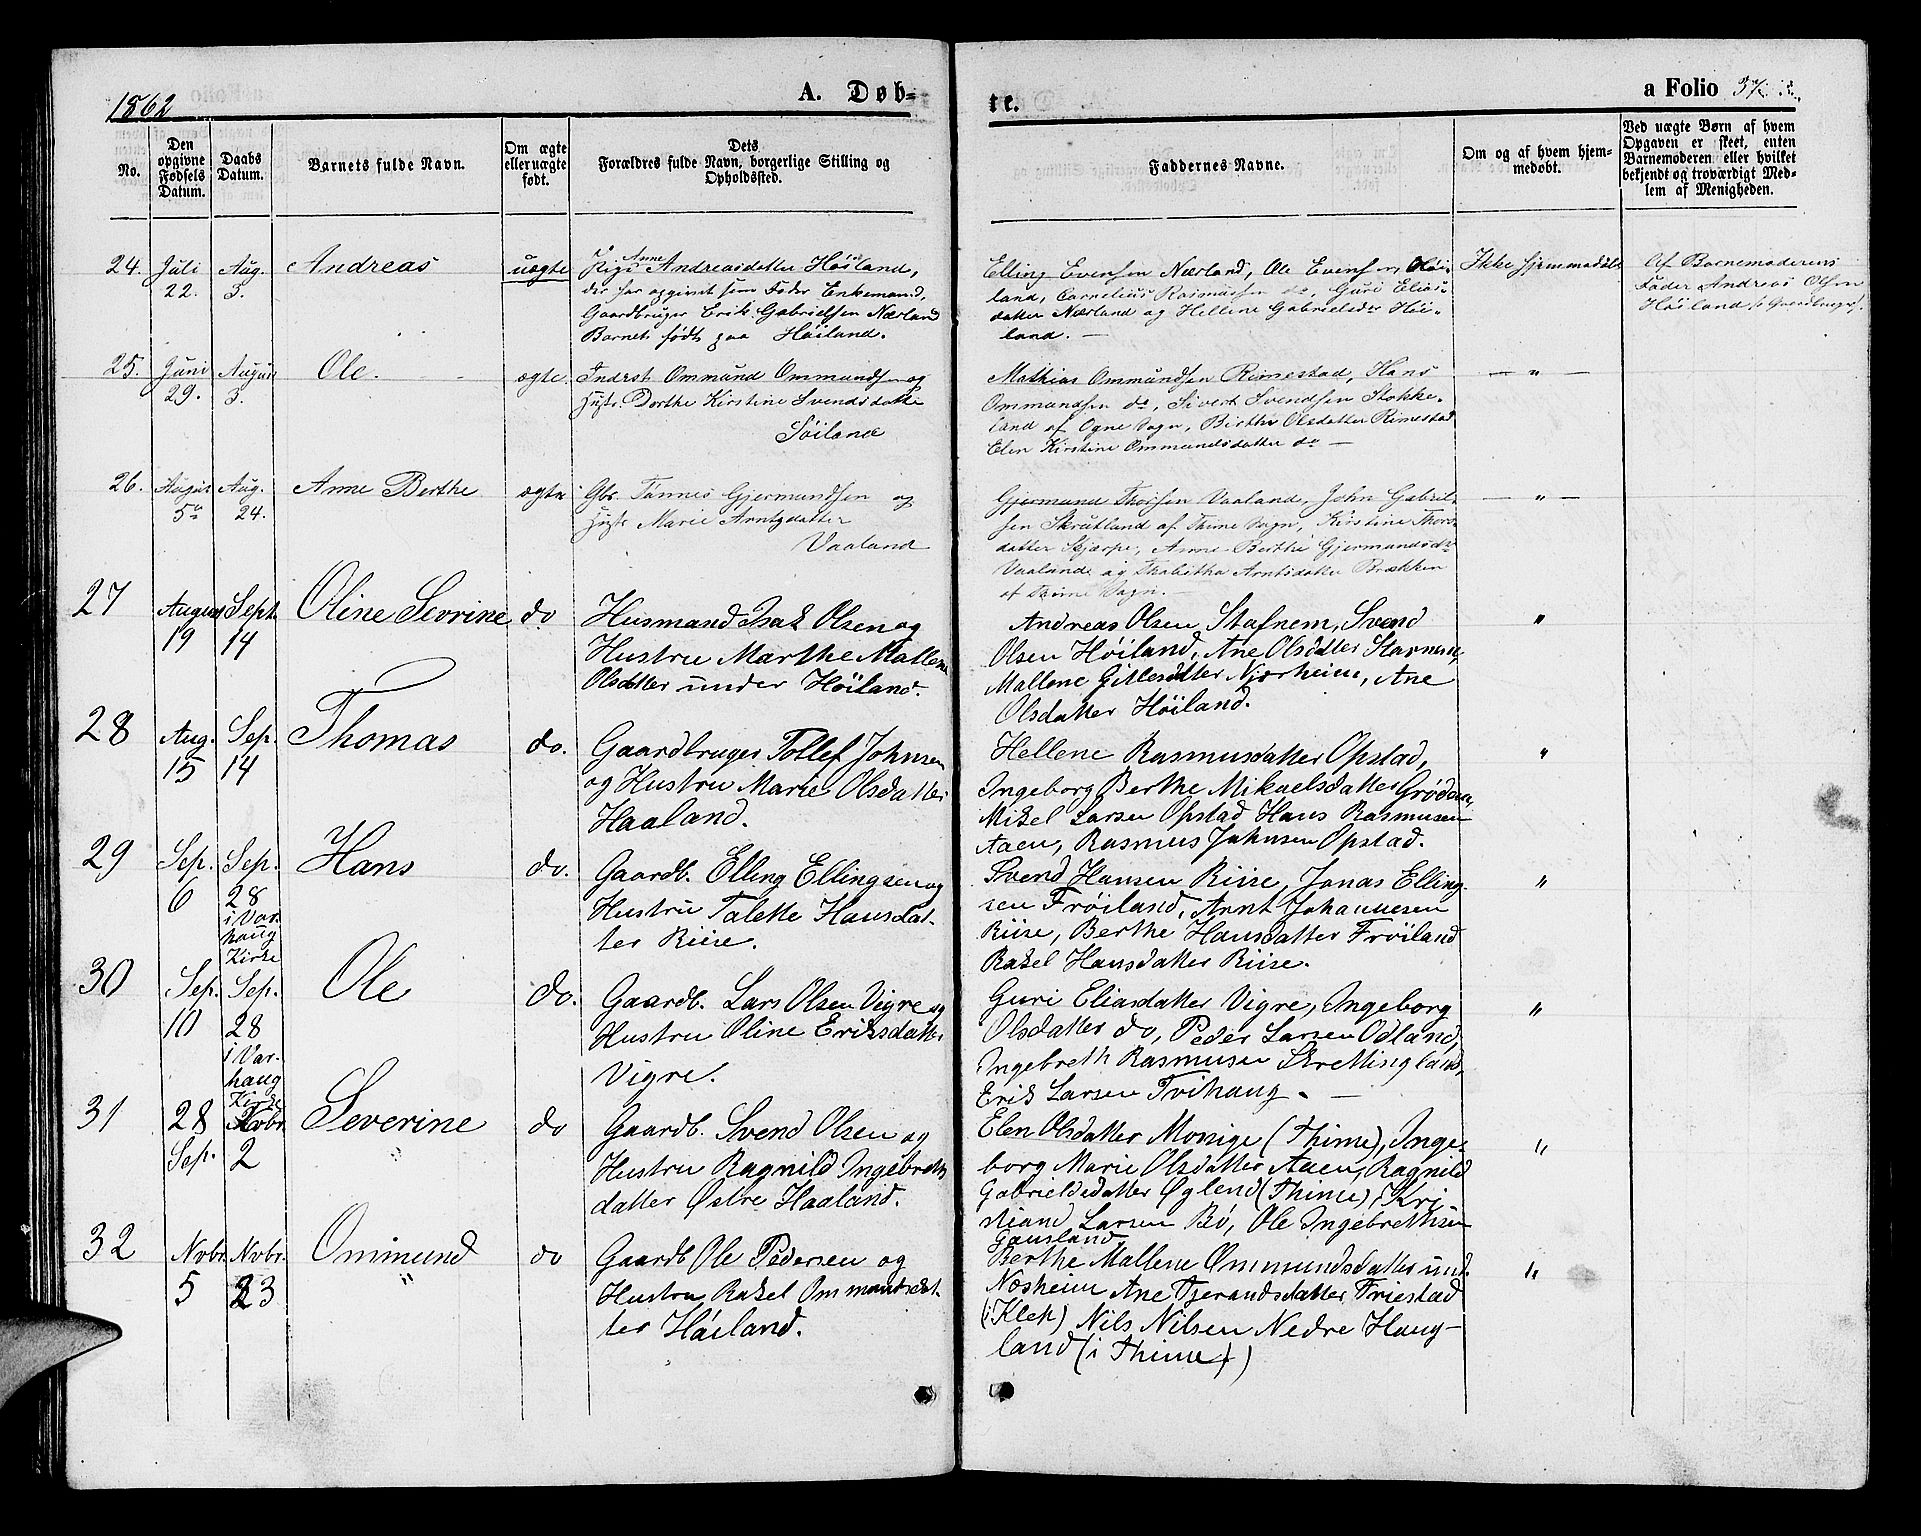 1862
A. Døb-
te.
a Folio
No.
Den opgivne Fødsels Datum.
Daabs Datum.
Barnets fulde Navn.
Om ægte eller uægte født.
Dets Forældres fulde Navn, borgerlige Stilling og Opholdssted.
Faddernes Navne.
Om og af hvem hjemmedøbt.
Ved uægte Børn af hvem Opgaven er skeet, enten Barnemoderen eller hvilket bekjendt og troværdigt Medlem af Menigheden.
24. Juli 22. Aug. 3. Andreas uægte
Pige Anne Andreasdatter Høiland,
der har opgivet som Fader Enkemand,
Gaardbruger Erik Gabrielsen Nærland
Barnet født paa Høiland.
Elling Evensen Nærland, Ole Evensen Høi-
land, Cornelius Rasmussen do, Guri Elias-
datter Nærland og Hellene Gabrielsdr Høi-
land. —
Ikke hjemmedøbt
Af Barnemoderens
Fader Andreas Olsen
Høiland
25. Juni 29. August 3. Ole. ægte.
Inderst Ommund Ommundsen og
Hustr. Dorthe Kirstine Svendsdatter
Søiland
Mathias Ommundsen Rimestad, Hans
Ommundsen do, Sivert Svendsen Stokke-
land af Ogne Sogn, Birthe Olsdatter Rimestad
Elen Kirstine Ommundsdatter do —
— " —
26. August 5 Aug. 24. Anne Berthe ægte
Gbr. Tønnes Gjermundsen og
Hustr Marie Arntsdatter
Vaaland
Gjermund Thorsen Vaaland, John Gabriel-
sen Skrutland af Thime Sogn, Kirstine Thors-
datter Skjærpe, Anne Berthe Gjermundsdr
Vaaland og Thabitha Arntsdatter Brækken
af Thime Sogn. —
— " —
27 August 19 Sept. 14 Oline Sevrine do
Husmand Isak Olsen og
Hustru Marthe Mallene
Olsdatter under Høiland.
Andreas Olsen Stafnem, Svend
Olsen Høiland, Ane Olsdatter Stavnem,
Mallene Gitlesdatter Njærheim, Ane
Olsdatter Høiland.
"
28 Aug. 15 Sep. 14 Thomas do.
Gaardbruger Tollef Johnsen
og Hustru Marie Olsdatter
Haaland.
Hellene Rasmusdatter Opstad,
Ingeborg Berthe Mikaelsdatter Grødem,
Mikel Larsen Opstad Hans Rasmusen
Aaen, Rasmus Johnsen Opstad.
"
29 Sep. 6 Sep. 28 i Varhaug Kirke Hans do.
Gaardb. Elling Ellingsen og
Hustru Talette Hansdat-
ter Riise.
Svend Hansen Riise, Jonas Elling-
sen Frøiland, Arnt Johannesen
Riise, Berthe Hansdatter Frøiland
Rakel Hansdatter Riise.
"
30 Sep. 10 Sep. 28 i Varhaug Kirke Ole do.
Gaardb. Lars Olsen Vigre og
Hustru Oline Eriksdatter
Vigre.
Guri Eliasdatter Vigre, Ingeborg
Olsdatter do, Peder Larsen Odland,
Ingebreth Rasmusen Skrettingland,
Erik Larsen Tvihaug. —
"
31 28 Sep. Nobr. 2 Severine do
Gaardb. Svend Olsen og
Hustru Ragnild Ingebreth
datter Østre Haaland.
Elen Olsdatter Monige (Thime), Inge-
borg Marie Olsdatter Aaen, Ragnild
Gabrielsdatter Øglend (Thime), Kri
stiand Larsen Bø, Ole Ingebrethsen
Gausland,
"
32 Nobr. 5 Nobr. 23 Ommund do
Gaardb Ole Pedersen og
Hustru Rakel Ommundsdat-
ter Høiland.
Berthe Mallene Ommundsdatter und.
Nosheim Ane Tjerandsdatter Friestad
(i Klep) Nils Nilsen Nedre Haug-
land (i Thime)
"